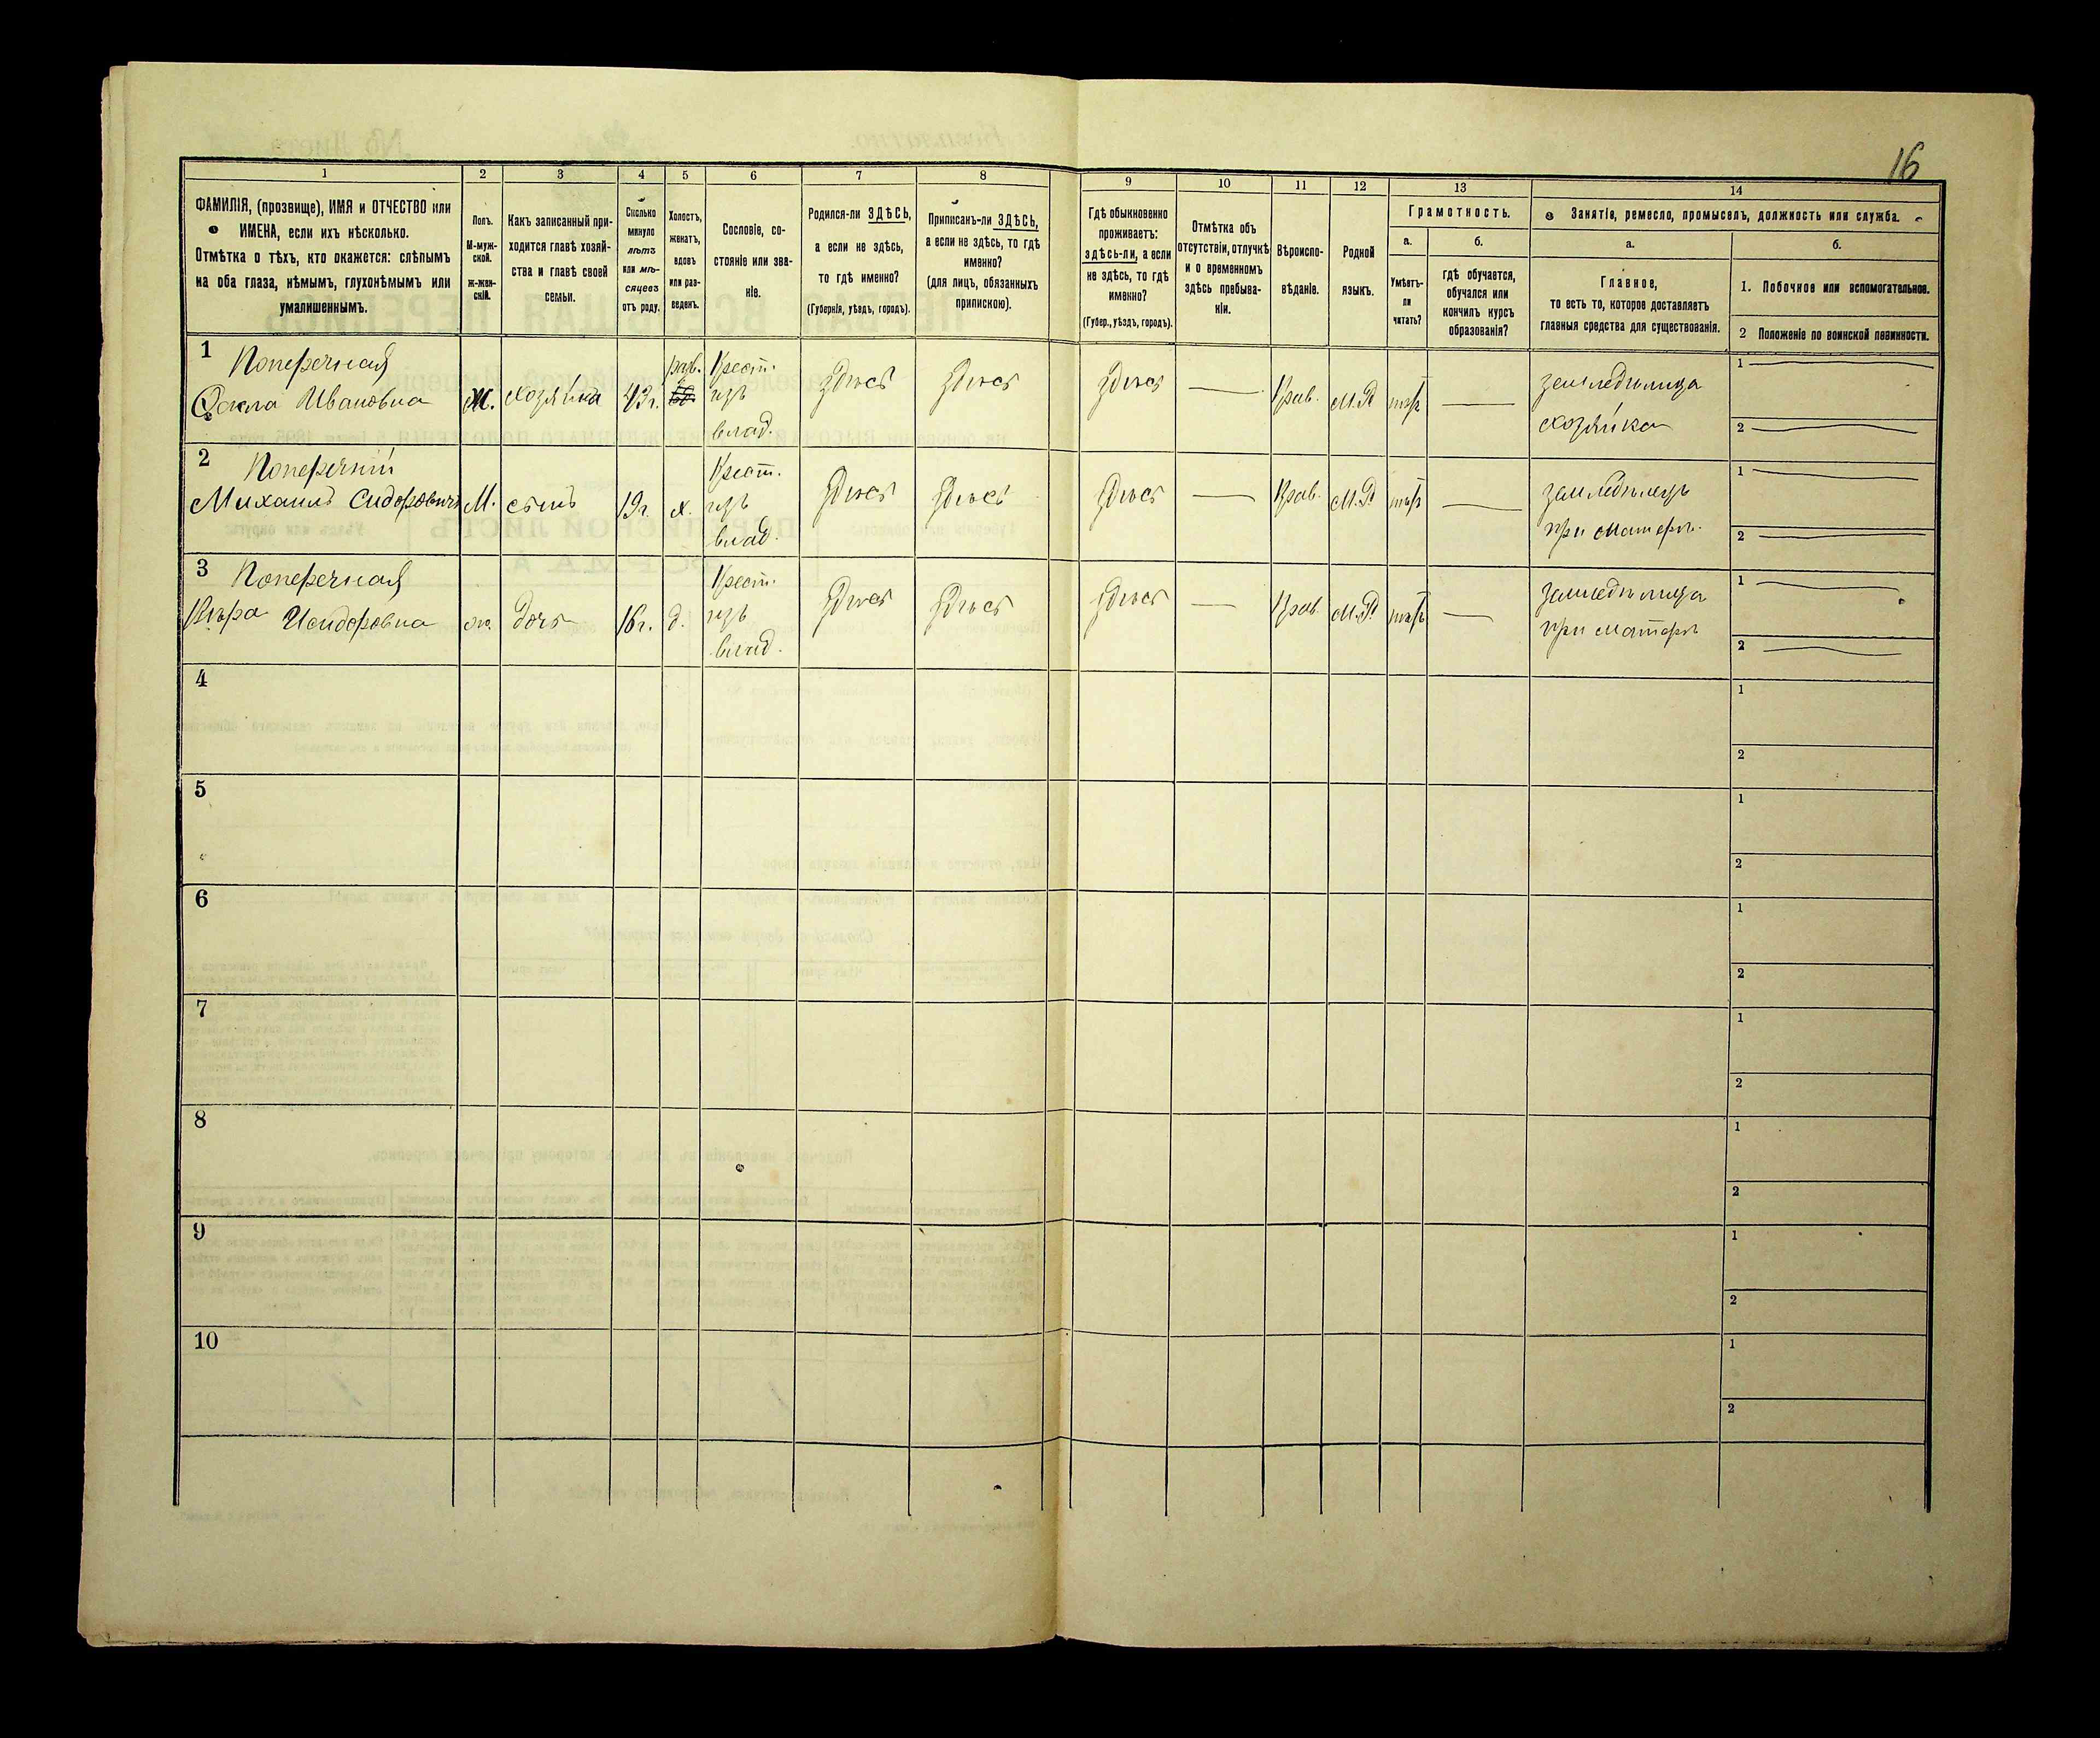 16
1
2
3
4
5
6
7
8
9
10
11
12
13
14
ФАМИЛІЯ, (прозвище), ИМЯ и ОТЧЕСТВО или
ИМЕНА, если ихъ нѣсколько.
Отмѣтка о тѣхъ, кто окажется: слѣпымъ
на оба глаза, нѣмымъ, глухонѣмымъ или
умалишеннымъ.
Полъ.
М-муж-
ской.
ж-жен-
скій.
Какъ записанный при-
ходится главѣ хозяй-
ства и главѣ своей
семьи.
Сколько
минуло
лѣтъ
или мѣ-
сяцевъ
отъ роду.
Холостъ,
женатъ,
вдовъ
или раз-
веденъ.
Сословіе, со-
стояніе или зва-
ніе.
Родился-ли ЗДѢСЬ,
а если не здѣсь,
то гдѣ именно?
(Губернія, уѣздъ, городъ).
Приписанъ-ли ЗДѢСЬ,
а если не здѣсь, то гдѣ
именно?
(для лицъ, обязанныхъ
припискою).
Гдѣ обыкновенно
проживаетъ:
здѣсь-ли, а если
не здѣсь, то гдѣ
именно?
(Губер., уѣздъ, городъ).
Отмѣтка объ
отсутствіи, отлучкѣ
и о временномъ
здѣсь пребыва-
ніи.
Вѣроиспо-
вѣданіе.
Родной
языкъ.
Грамотность.
а.
Умѣетъ-
ли
читать?
б.
гдѣ обучается,
обучался или
кончилъ курсъ
образованія?
Занятіе, ремесло, промыселъ, должность или служба.
а.
Главное,
то есть то, которое доставляетъ
главныя средства для существованія.
б.
1. Побочное или вспомогательное.
2 Положеніе по воинской повинности.
1 Поперечная
Фекла Ивановна
ж.
хозяйка
43 г.
Крест.
изъ
влад.
здѣсь
здѣсь
здѣсь
Прав.
М.Р
нѣтъ
земледѣлица
хозяйка
1
2
2 Поперечный
Михаилъ Сидоровичъ
М.
сынъ
19 г.
х.
Крест.
изъ
влад.
здѣсь
здѣсь
здѣсь
Прав.
М.Р
нѣтъ
земледѣлецъ
при матери.
1
2
3 Поперечная
Вѣра Исидоровна
ж.
дочь
16 г.
д.
Крест.
изъ
влад.
здѣсь
здѣсь
здѣсь
Прав.
М.Р
нѣтъ
земледѣлица
при матери
1
2
4
1
2
5
1
2
6
1
2
7
1
2
8
1
2
9
1
2
10
1
2